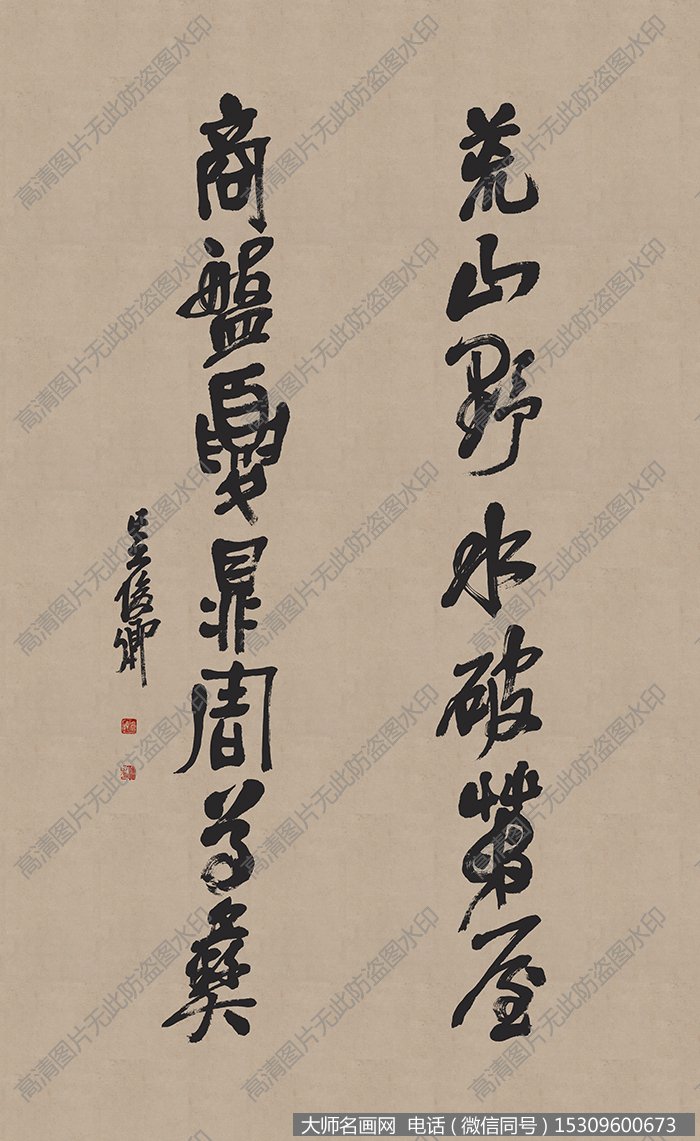 荒山野水破茅屋
商盤夏鼎周尊彝
吳俊卿
高清图片无此防盗图水印
大师名画网 电话（微信同号）15309600673